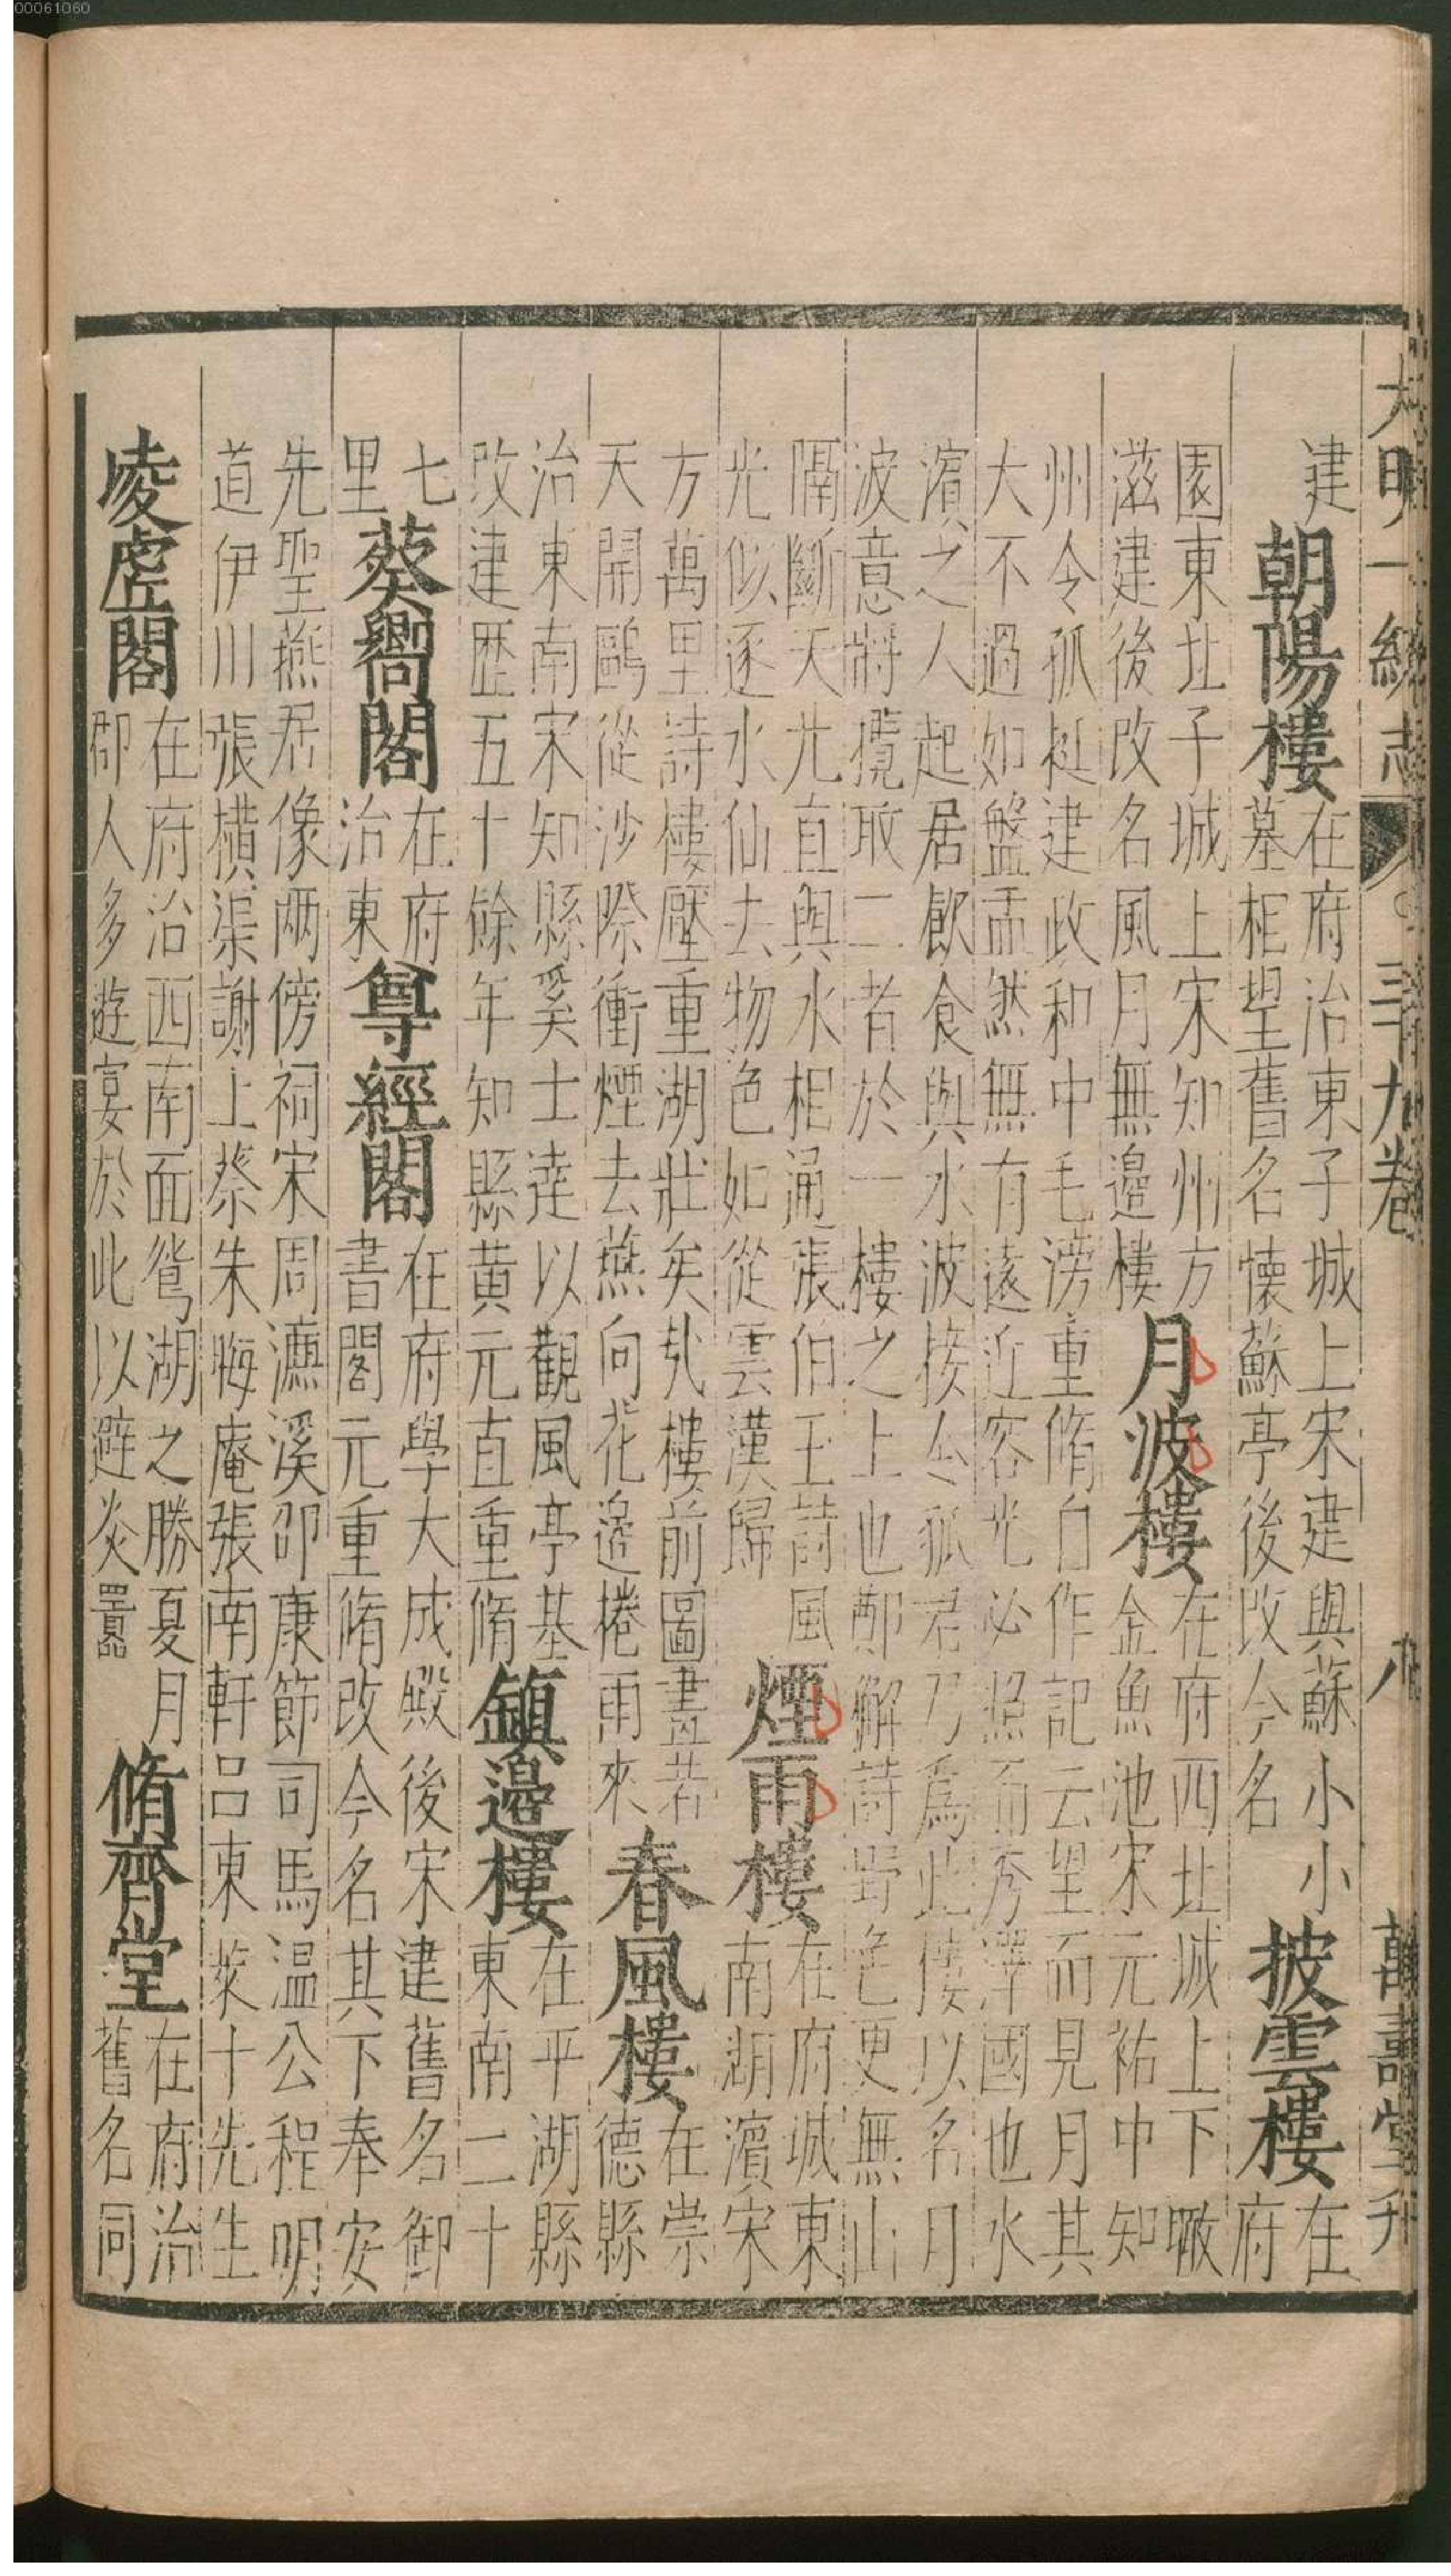 00061060
大明一統志 三十九卷 八 萬壽堂刊
建
朝陽樓
在府治東子城上宋建與蘇小小
墓相望舊名懷蘇亭後改今名
披雲樓
在
府
園東北子城上宋知州方
滋建後改名風月無邊樓
月波樓
在府西北城上下瞰
金魚池宋元祐中知
州令狐挺建政和中毛滂重脩自作記云望而見月其
大不過如盤盂然無有遠近容光必照而秀澤國也水
濱之人起居飲食與水波接令狐君乃爲此樓以名月
波意將攬取二者於一樓之上也鄭獬詩野色更無山
隔斷天光直與水相通張伯玉詩風
光似逐水仙去物色如從雲漢歸
煙雨樓
在府城東
南湖濱宋
方萬里詩樓壓重湖壯矣哉樓前圖畫若
天開鷗從沙際衝煙去燕向花邊捲雨來
春風樓
在崇
德縣
治東南宋知縣奚士逵以觀風亭基
改建歷五十餘年知縣黄元直重脩
鎮邊樓
在平湖縣
東南二十
七
里
葵嚮閣
在府
治東
尊經閣
在府學大成殿後宋建舊名御
書閣元重脩改今名其下奉安
先聖燕居像兩傍祠宋周濂溪邵康節司馬温公程明
道伊川張橫渠謝上蔡朱晦庵張南軒呂東萊十先生
凌虛閣
在府治西南面鴛湖之勝夏月
郡人多遊宴於此以避炎囂
脩齊堂
在府治
舊名同